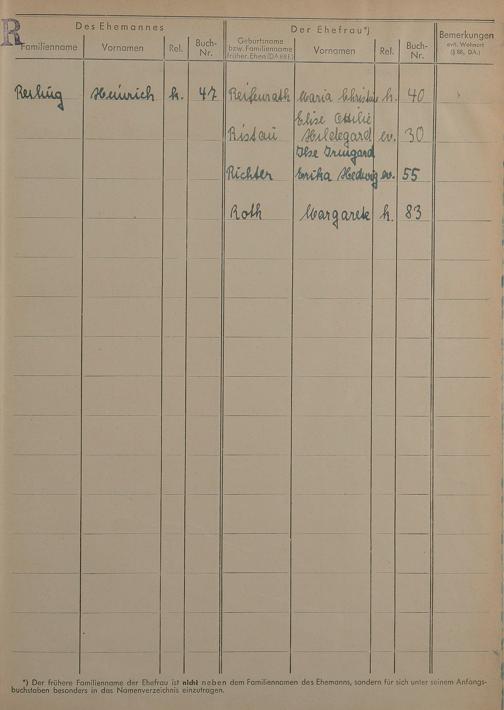 R
Des Ehemannes
Der Ehefrau*)
Bemerkungen
evtl. Wohnort
(§ 88, DA.)
Familienname
Vornamen
Rel.
Buch-
Nr.
Geburtsname
bzw. Familienname
früher. Ehen (DA 88 F.)
Vornamen
Rel.
Buch-
Nr.
Heinrich k. 47 Reifenrath Maria Christine k. 40
Elise Ottilie
Ristau Hildegard ev. 30
Ilse Irmgard
Richter Erika Hedwig ev. 55
Roth Margarete k. 83
*) Der frühere Familienname der Ehefrau ist nicht neben dem Familiennamen des Ehemanns, sondern für sich unter seinem Anfangs-
buchstaben besonders in das Namenverzeichnis einzutragen.